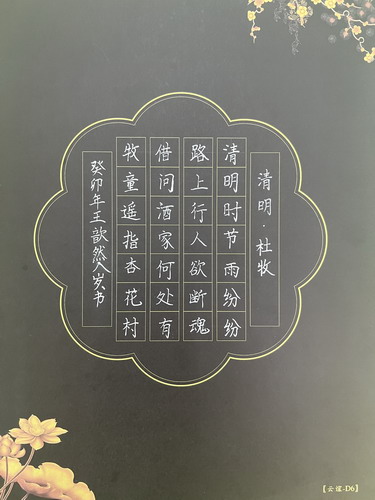 清明·杜牧
清明时节雨纷纷
路上行人欲断魂
借问酒家何处有
牧童遥指杏花村
癸卯年王歆然八岁书
【云煙-D6】